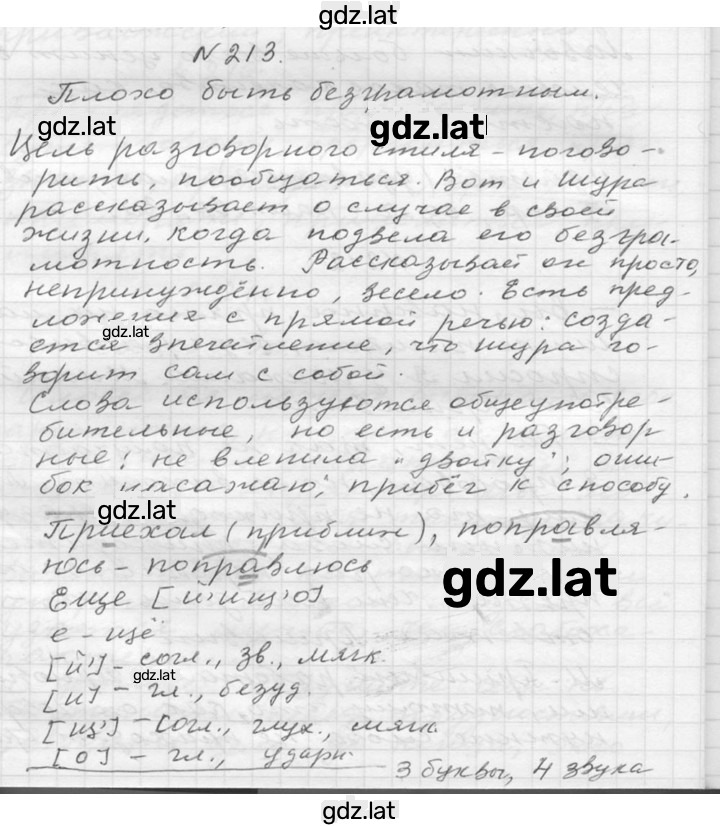 gdz.lat
N 213.
Плохо быть безграмотным.
gdz.lat
gdz.lat
Цель разговорного стиля - погово-
рить, пообщаться. Вот и Шура
рассказывает о случае в своей
жизни, когда подвела его безгра-
мотность. Рассказывает он просто,
непринуждённо, весело. Есть пред-
ложения с прямой речью: созда-
gdz.lat
ётся впечатление, что Шура го-
ворит сам с собой.
Слова используются общеупотре-
бительные, но есть и разговор
ные: не влепила "двойку"; оши-
бок насажаю; прибег к способу.
gdz.lat
Приехал (приближ), поправля-
юсь - поправлюсь
gdz.lat
Еще [й'ищ'о]
е - щё
[й'] - согл., зв., мягк.
gdz.lat
[и] - гл., безуд.
[щ'] - согл., глух., мягк.
[о] - гл., ударн.
3 буквы, 4 звука
gdz.lat